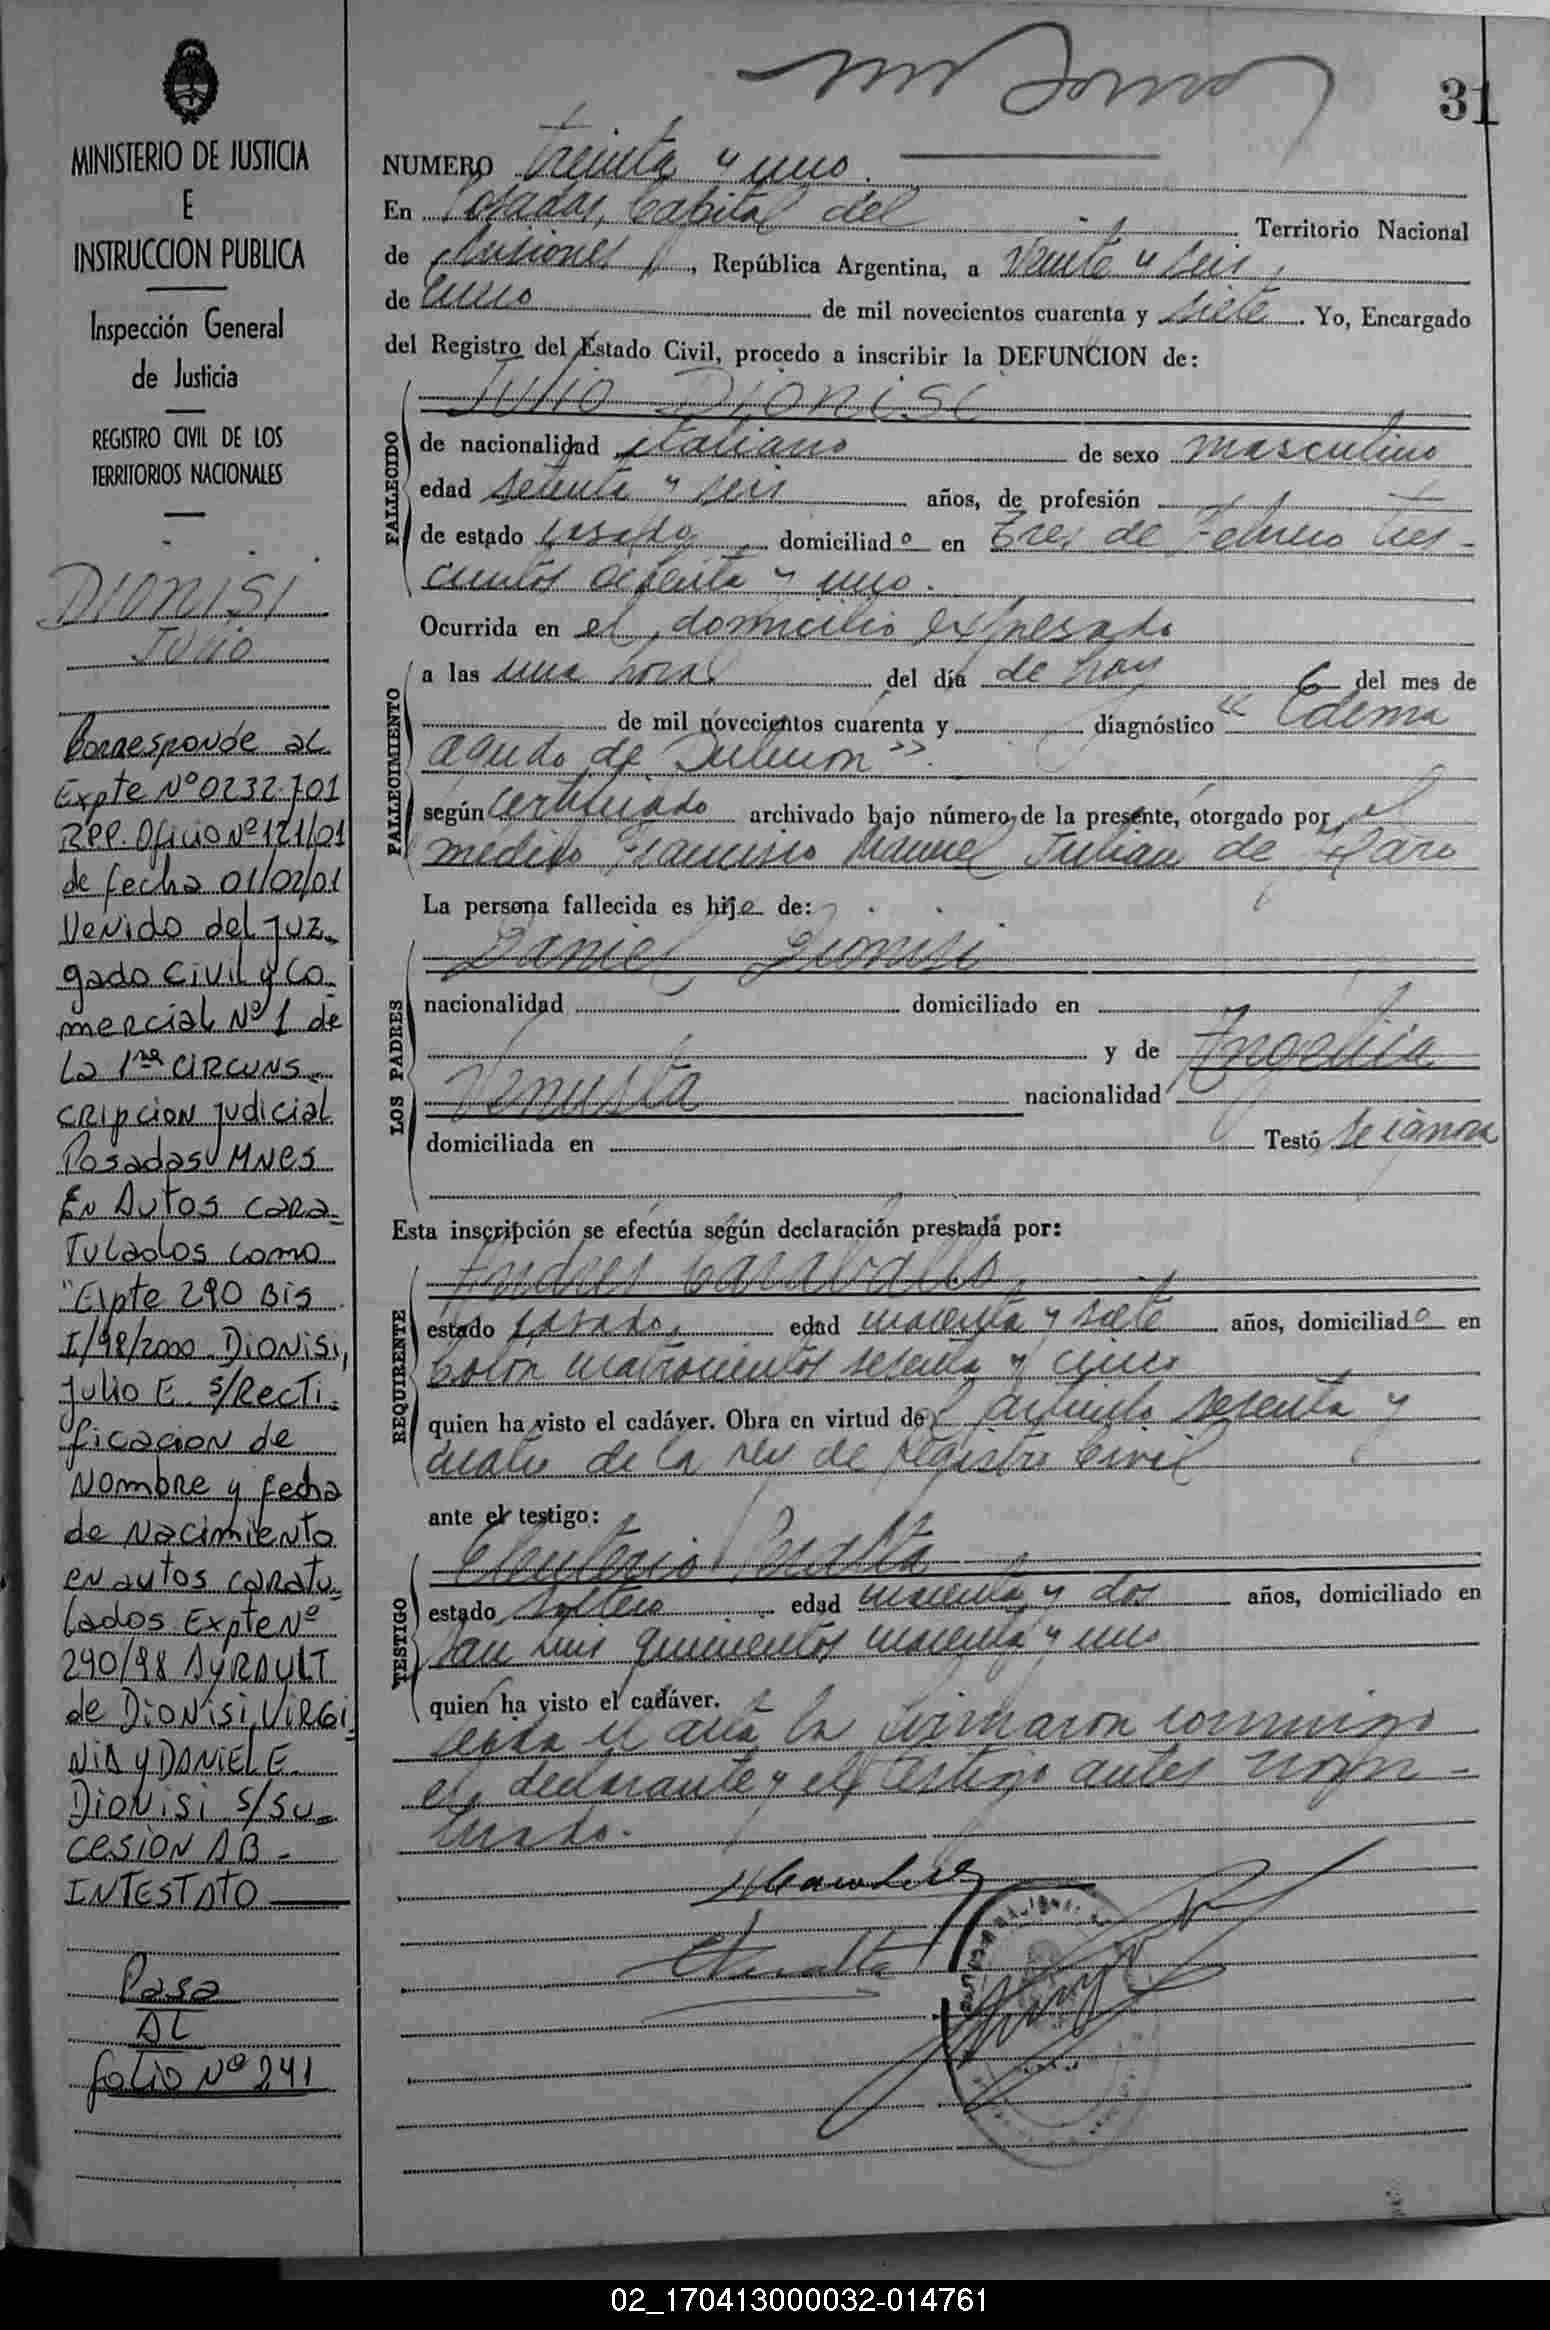 MINISTERIO DE JUSTICIA
E
INSTRUCCION PUBLICA
Inspección General
de Justicia
REGISTRO CIVIL DE LOS
TERRITORIOS NACIONALES
DIONISI
Julio
Corresponde al
Expte Nº 0232-701
RPP. Oficio Nº 121/01
de fecha 01/02/01
Venido del Juz-
gado Civil y Co-
mercial Nº 1 de
La 1ra CIRCUNS-
CRIPCION Judicial
Posadas MNES
EN AUTOS CARA-
TULADOS COMO
"Expte 290 Bis
I/98/2000. DIONISI,
Julio E. S/Recti-
ficacion de
Nombre y fecha
de Nacimiento
en autos caratu-
lados Expte Nº
290/98 AYRAULT
de DIONISI, VIRGI-
NIA y DANIEL E.
DIONISI S/SU-
CESION AB-
INTESTATO
Pasa
AL
folio Nº 241
31
NUMERO treinta y uno.
En Posadas, Capital del Territorio Nacional
de Misiones, República Argentina, a veinte y seis,
de Enero de mil novecientos cuarenta y siete. Yo, Encargado
del Registro del Estado Civil, procedo a inscribir la DEFUNCION de:
FALLECIDO
Julio Dionisi
de nacionalidad italiano de sexo masculino
edad setenta y seis años, de profesión
de estado casado, domiciliado en Tres de Febrero tres-
cientos setenta y uno.
Ocurrida en el domicilio expresado
FALLECIMIENTO
a las una hora del día de hoy del mes de
de mil novecientos cuarenta y diagnóstico "Edema
agudo de Pulmon".
según certificado archivado bajo número de la presente, otorgado por el
medico Francisco Manuel Julian de Haro
La persona fallecida es hijo de:
LOS PADRES
Daniel Dionisi
nacionalidad domiciliado en
y de Angelica
Venusta nacionalidad
domiciliada en Testó se ignora
Esta inscripción se efectúa según declaración prestada por:
REQUIRENTE
Andres Caraballo
estado casado, edad cuarenta y siete años, domiciliado en
Colon cuatrocientos sesenta y cinco
quien ha visto el cadáver. Obra en virtud del artículo sesenta y
cuatro de la ley de registro Civil
ante el testigo:
TESTIGO
Eleuterio Peralta
estado soltero edad cuarenta y dos años, domiciliado en
San Luis quinientos cuarenta y uno
quien ha visto el cadáver.
Leída el acta la firmaron conmigo
el declarante y el testigo antes nom-
brado.
02_170413000032-014761